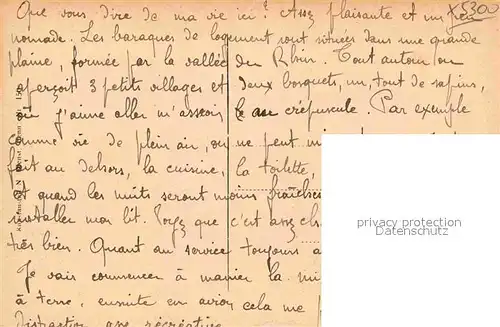 Que vous dire de ma vie ici? Assez plaisante et un peu
nomade. Les baraques de logement sont situées dans une grande
plaine, formée par la vallée du Rhin. Tout autour on
aperçoit 3 petits villages et deux bosquets, un, tout de sapins,
où j'aime aller m'asseoir le au crépuscule. Par exemple
comme vie de plein air, on ne peut mi
fait au dehors, la cuisine, la toilette,
et quand les nuits seront moins fraîches
installer mon lit. Voyez que c'est assez ch
très bien. Quant au service toujours a
Je vais commencer à manier la mi
à terre, ensuite en avion cela me
distraction, une récréation
x530
privacy protection
Datenschutz